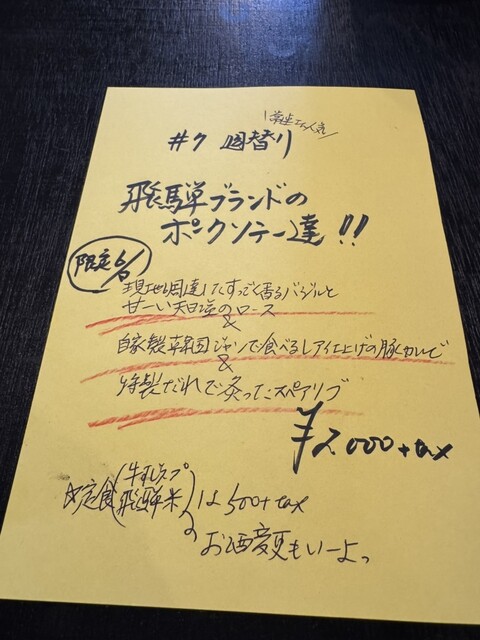 #7 週替り
飛騨ブランドの
ポークソテー達!!
限定6/日
現地調達したすっごく香るバジルと
甘ーい天日塩のロース
&
自家製韓国ジャンで食べるレア仕上げの豚カルビ
&
特製だれで炙ったスペアリブ
¥2.000+tax
定食(牛すじスープ 飛騨米)は500+tax
お酒変更もいーよっ